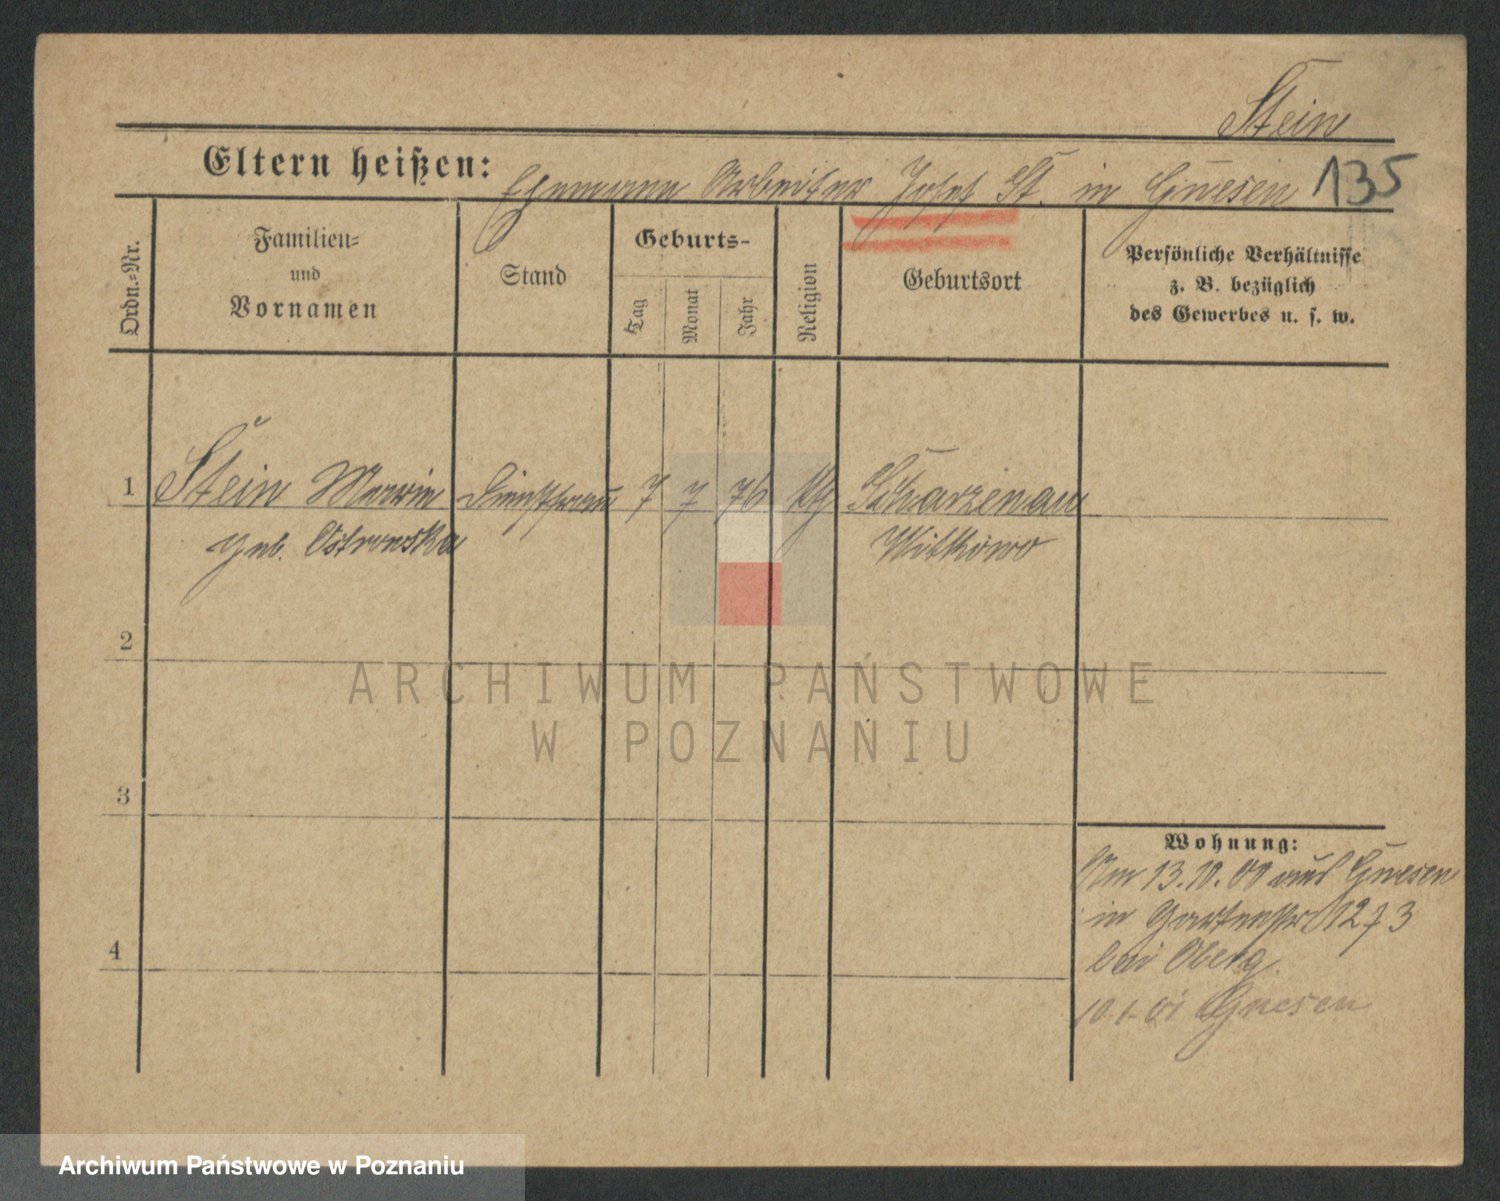 Stein
Eltern heißen: Ehemann Arbeiter Josef St. in Gnesen 135
Ordn.-Nr.
Familien-
und
Vornamen
Stand
Geburts-
Tag
Monat
Jahr
Religion
Geburtsort
Persönliche Verhältnisse
z. B. bezüglich
des Gewerbes u. s. w.
1 Stein Marie Dienstfrau 7 7 76 kth Schwarzenau
geb. Ostrowska Witkowo
2
3
4
Wohnung:
Am 13.10.00 aus Gnesen
in Gartenstr 12 3
bei Oberg
10.1.01 Gnesen
ARCHIWUM PAŃSTWOWE
W POZNANIU
Archiwum Państwowe w Poznaniu